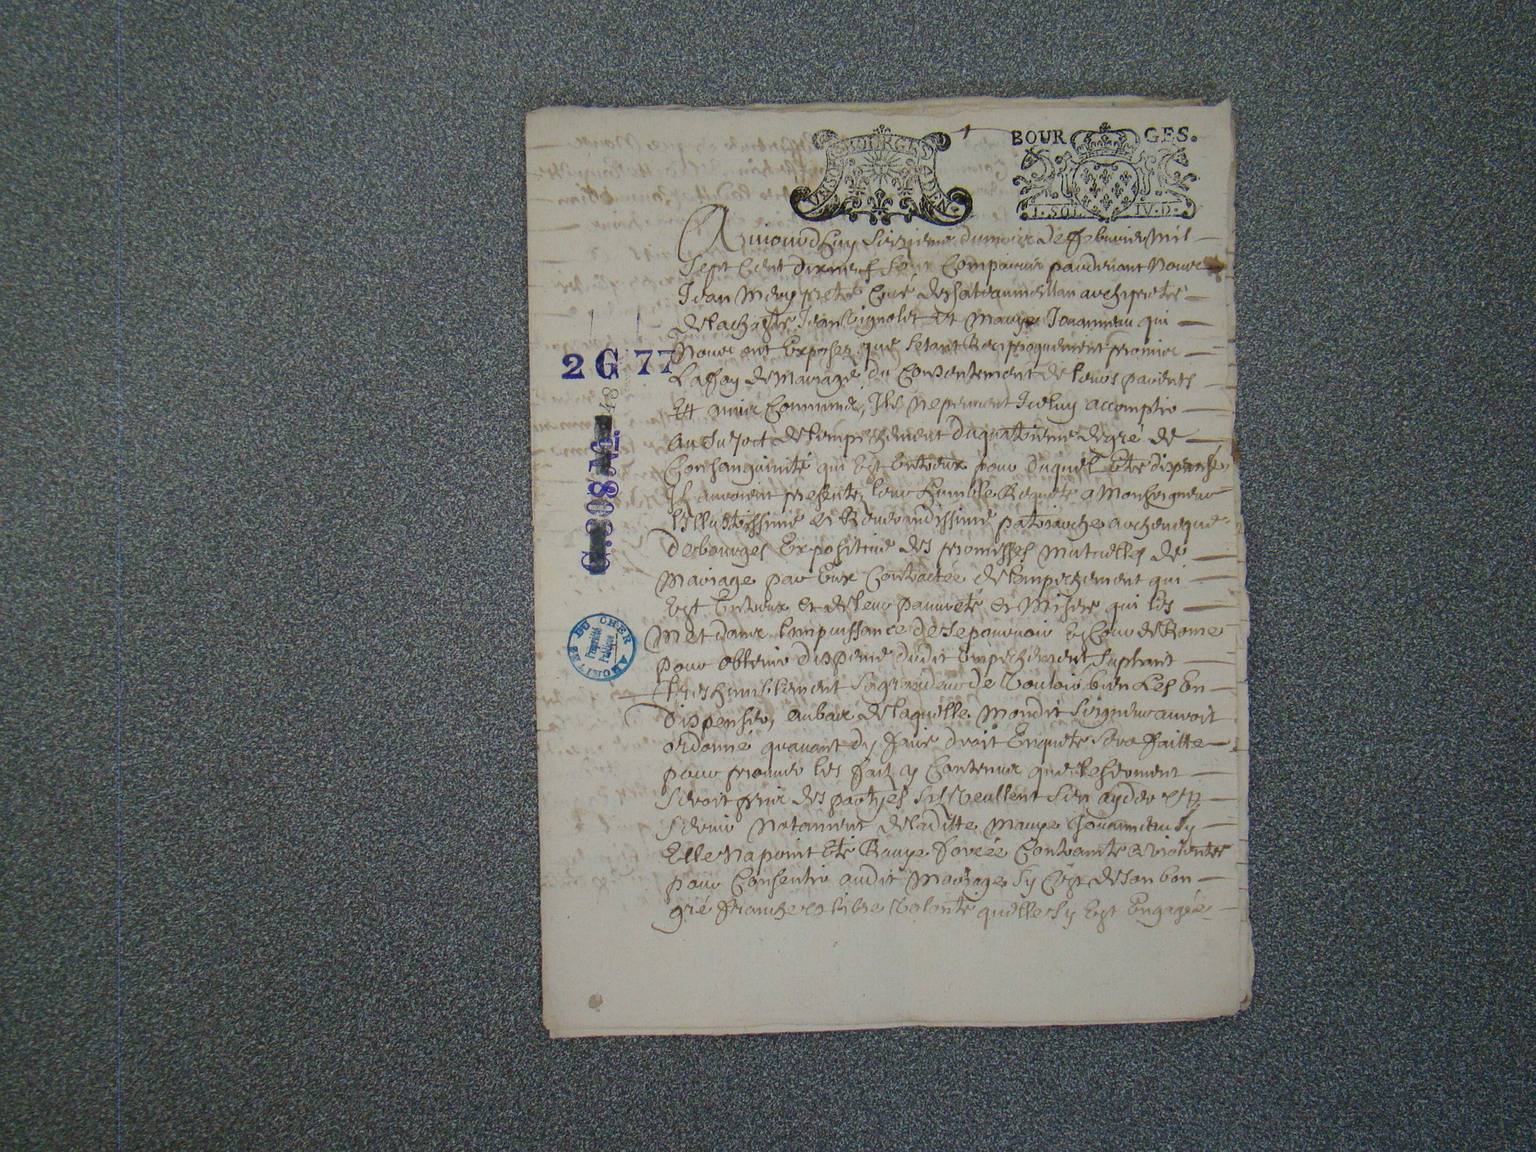 BOURGES
BOUR GES.
1. SOL. IV. D.
Aujourdhuy seizieme dumois de ffebvrier Mil
Sept Cent dixneuf sont Comparus pardevant Nous
Jean Mery pretre Curé dechateaumeillan archipretre
delachatre Jean Vignolet et Marye Jouanneau qui
Nous ont Exposez que setant Reciproquement promis
Laffoy de Mariage du Consentement de leurs parents
Et amis Communs, Ils Nepeuvent Iceluy accomplir
au suject delempechement duquatrieme degré de
Consanguinité qui Est Entreux pour duquel Etre dispensé
Ils auroient presenté leur humble Requete a Monseigneur
Lillustrissime et Reverendissime patriarche archeveque
debourges Expositive des promesses Mutuelles de
Mariage par Eux Contractée delempechement qui
Est Entreux et deleur pauvreté et Misere qui les
Met dans Limpuissance desepourvoir En Cour de Rome
pour obtenir dispense dudit Empechement supliant
treshumblement sagrandeur de Vouloir bien Les En
dispenser, aubas delaquelle Mondit Seigneur auroit
ordonné quavant dy faire droit Enquete sera ffaitte
pour prouver les fait y Contenus que leserment
seroit pris des partyes silsveullent sen ayder
scavoir Notament deladitte Marye Jouanneau sy
Elle Na point Eté Ravye forcée Contrainte & violentée
pour Consentir audit Mariage sy Cest deson bon
gré franche et libre Volonté quellesy Est Engagée
2 G 77
G. 308 No.
18
DU CHER
ARCHIVES
Propriété
Publique